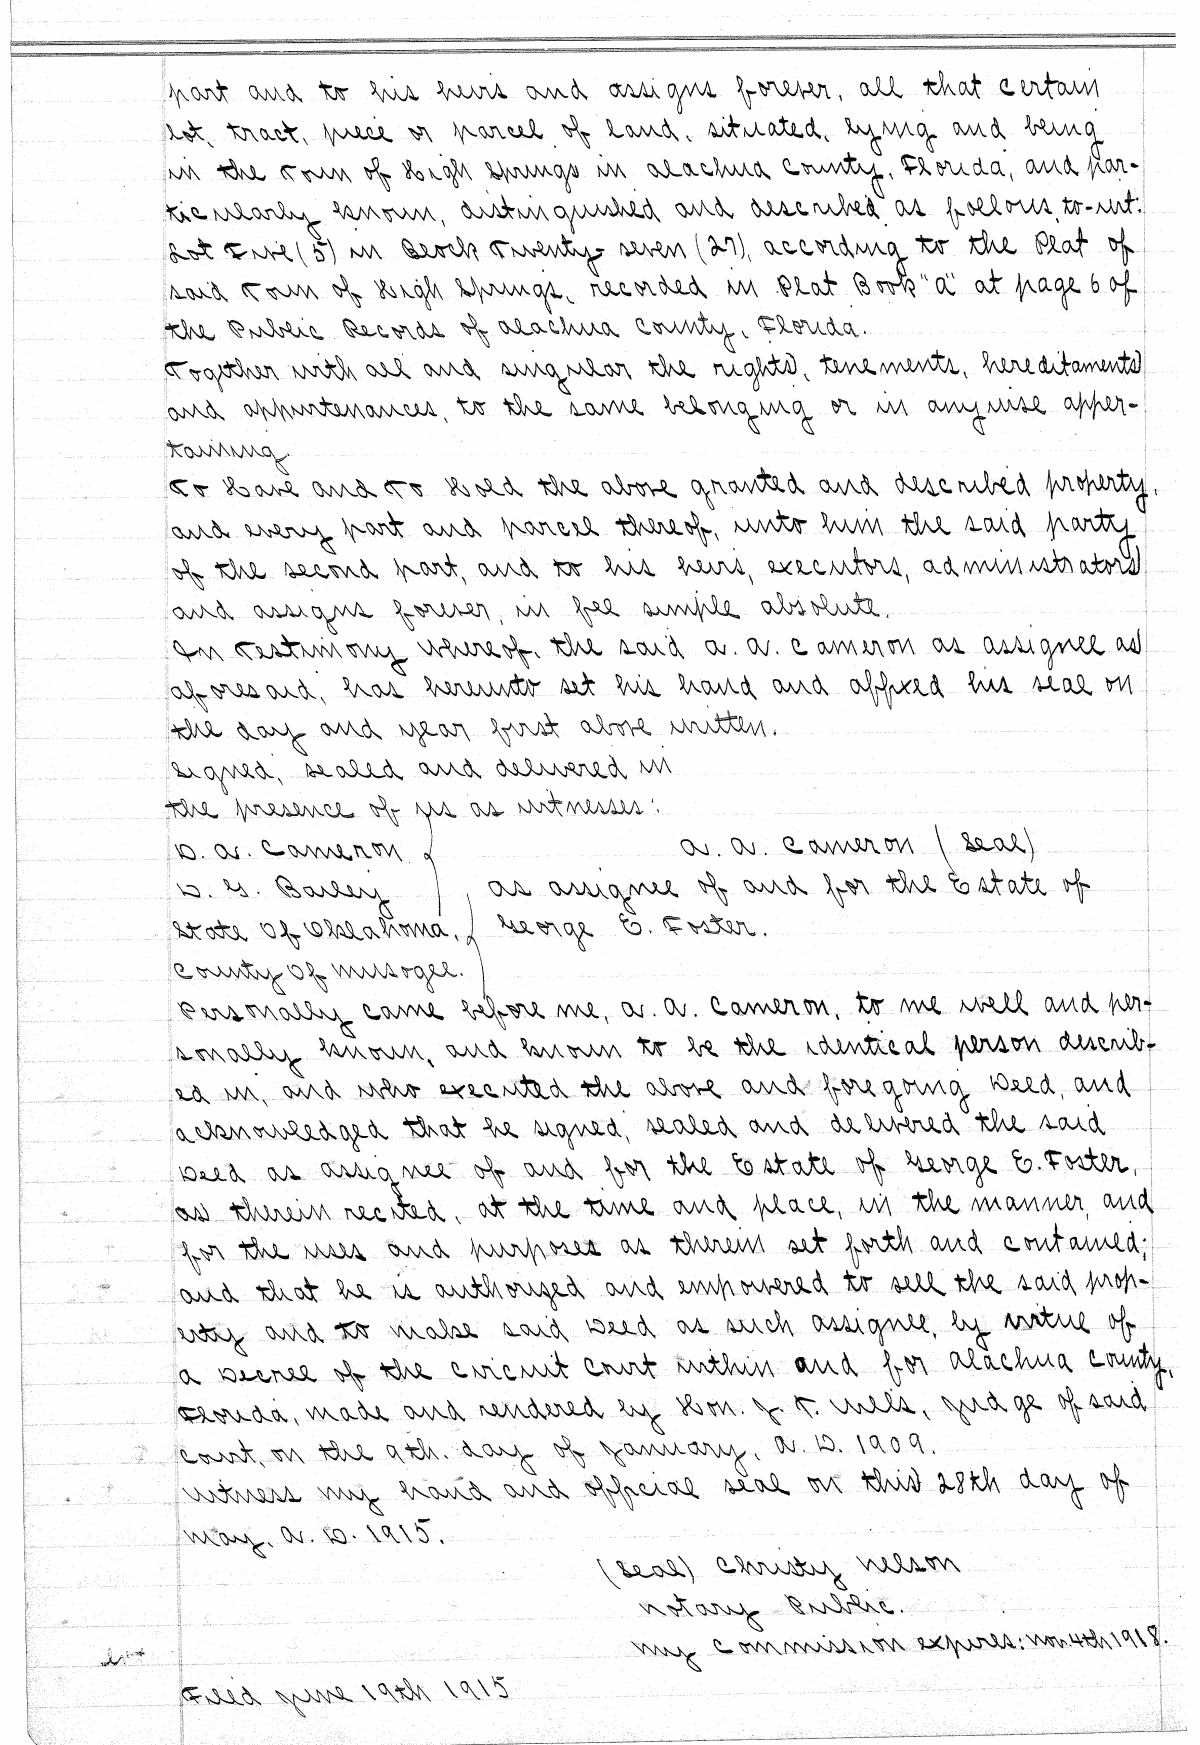 part and to his heirs and assigns forever, all that certain
lot, tract, piece or parcel of land, situated, lying and being
in the Town of High Springs in Alachua County, Florida, and par-
ticularly known, distinguished and described as follows, to-wit:
Lot Five (5) in Block Twenty-seven (27), according to the Plat of
said Town of High Springs, recorded in Plat Book "A" at page 6 of
the Public Records of Alachua County, Florida.
Together with all and singular the rights, tenements, hereditaments
and appurtenances, to the same belonging or in anywise apper-
taining.
To Have and To Hold the above granted and described property,
and every part and parcel thereof, unto him the said party
of the second part, and to his heirs, executors, administrators
and assigns forever, in fee simple absolute.
In Testimony Whereof, the said A. A. Cameron as assignee as
aforesaid, has hereunto set his hand and affixed his seal on
the day and year first above written.
Signed, sealed and delivered in
the presence of us as witnesses:
D. A. Cameron A. A. Cameron (Seal)
D. G. Bailey as assignee of and for the Estate of
State Of Oklahoma, George E. Foster.
County Of Musogee.
Personally came before me, A. A. Cameron, to me well and per-
sonally known, and known to be the identical person describ-
ed in, and who executed the above and foregoing Deed, and
acknowledged that he signed, sealed and delivered the said
Deed as assignee of and for the Estate of George E. Foster,
as therein recited, at the time and place, in the manner, and
for the uses and purposes as therein set forth and contained;
and that he is authorized and empowered to sell the said prop-
erty and to make said Deed as such assignee, by virtue of
a Decree of the Circuit Court within and for Alachua County,
Florida, made and rendered by Hon. J. T. Wills, Judge of said
Court, on the 9th. day of January, A. D. 1909.
Witness my hand and official seal on this 28th day of
May, A. D. 1915.
(Seal) Christy Nelson
Notary Public.
My Commission expires: Nov 4th 1918.
Filed June 19th 1915